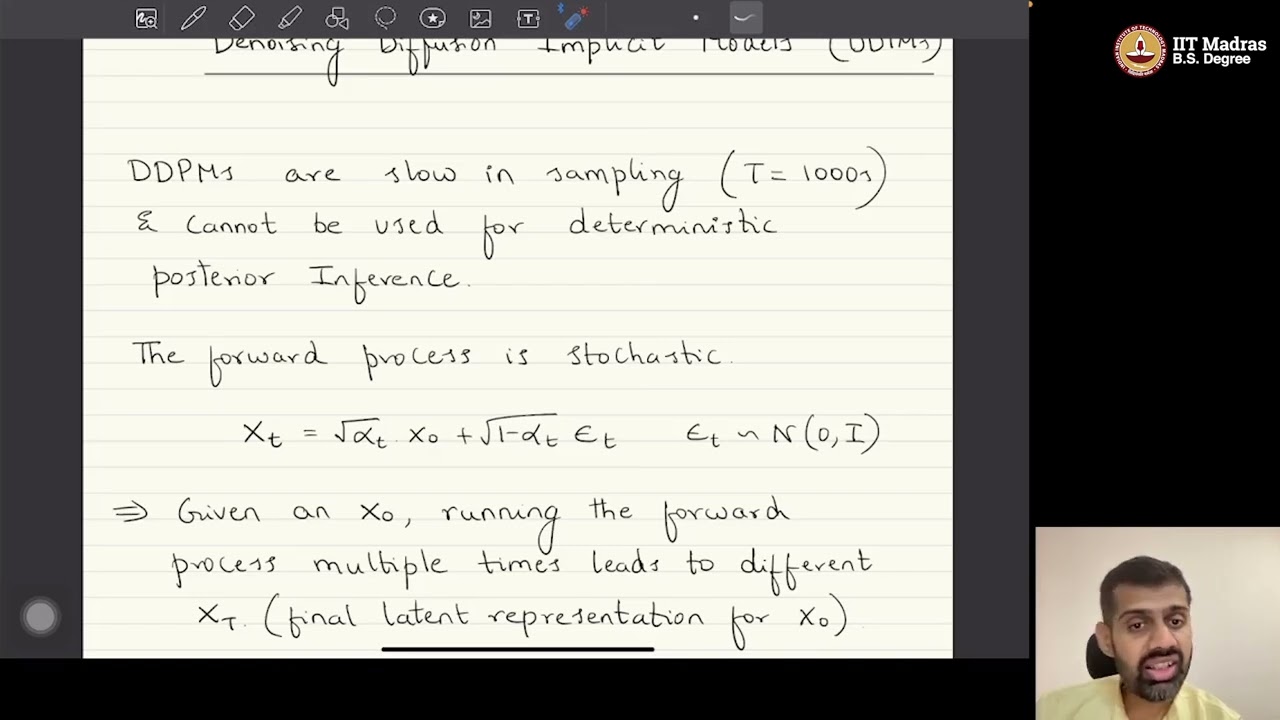 Denoising Diffusion Implicit Models (DDIMs)
DDPMs are slow in sampling (T = 1000s)
& cannot be used for deterministic
posterior Inference.
The forward process is stochastic.
X_t = √α_t. X_0 + √1-α_t ϵ_t   ϵ_t ~ N(0, I)
⇒ Given an X_0, running the forward
process multiple times leads to different
X_T. (final latent representation for X_0)
IIT Madras
B.S. Degree